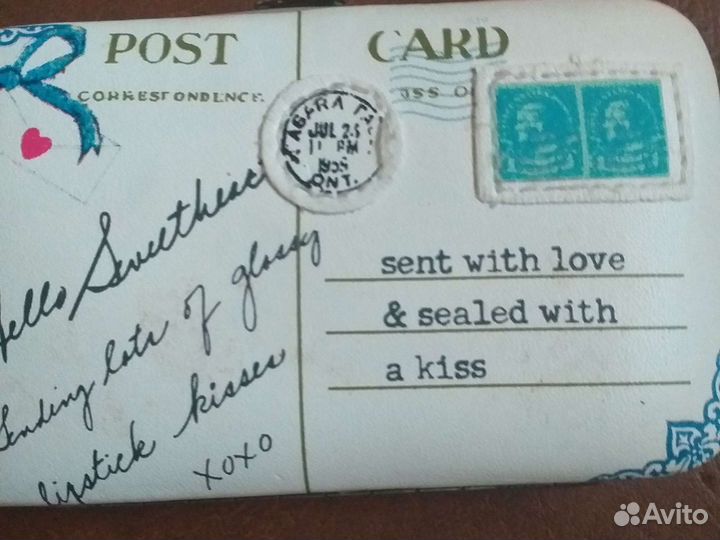 POST CARD
CORRESPONDENCE
JUL 25
PM
ONT.
Hello Sweetheart
Sending lots of glossy
lipstick kisses
xoxo
sent with love
& sealed with
a kiss
Avito